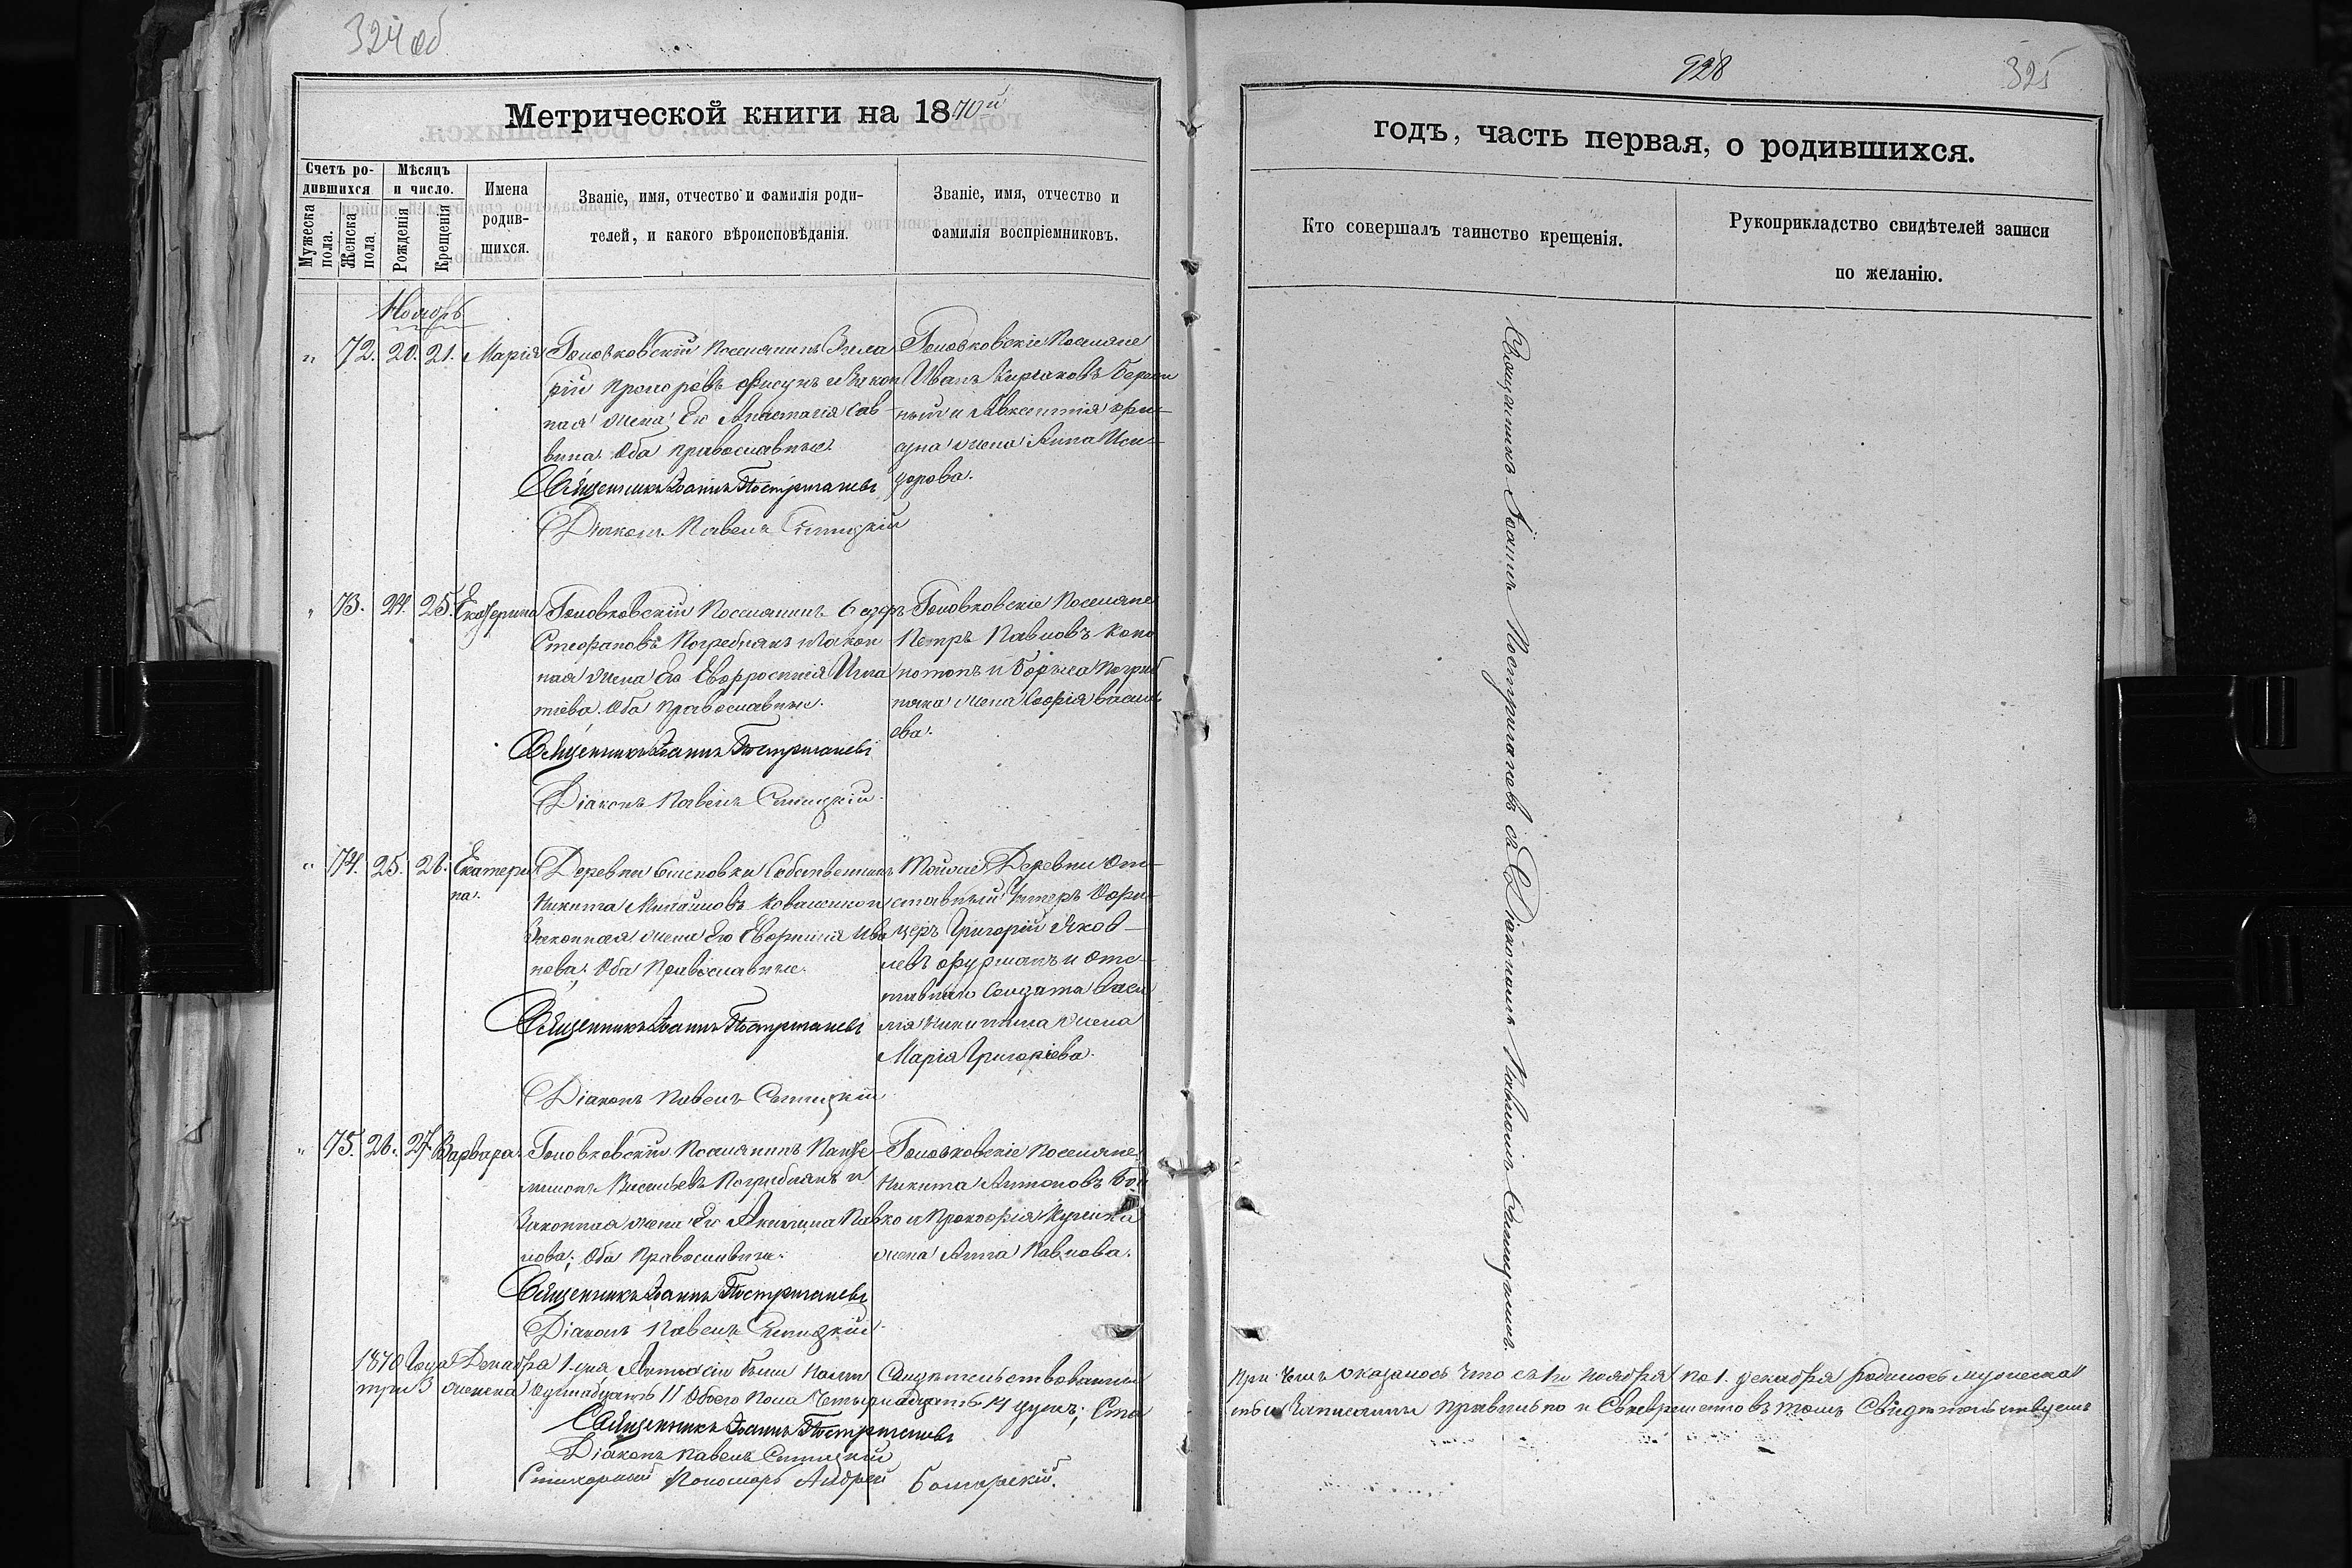 324 об
Метрической книги на 1870й
Счетъ ро-
дившихся
Мужеска пола.
Женска пола.
Мѣсяцъ
и число.
Рожденія
Крещенія
Имена
родив-
шихся.
Званіе, имя, отчество и фамилія роди-
телей, и какого вѣроисповѣданія.
Званіе, имя, отчество и
фамилія воспріемниковъ.
Ноябрь
" 72. 20. 21. Марія
Головковскій Поселянинъ
Фисунъ и Закон
ная жена Его Анастасія Сав
вина. Оба православные.
Священникъ Іоаннъ Постригачевъ
Діаконъ Павелъ
Головковскіе Поселяне
Иванъ
и Авксентія Фи-
суна жена Анна Иси-
дорова.
" 73. 24. 25. Екатерина
Головковскій Поселянинъ
Стефановъ Погребнякъ и Закон
ная жена Его Евфросинія Игна
тіева. Оба Православные.
Священникъ Іоаннъ Постригачевъ
Діаконъ Павелъ
Головковскіе Поселяне
Петръ Павловъ Коно
потопъ и Погреб
няка жена Софія Василь
ева.
" 74. 25. 26. Екатери
на.
Деревни Собственникъ
Никита Михайловъ
Законная жена Его Ива
нова; Оба Православные.
Священникъ Іоаннъ Постригачевъ
Діаконъ Павелъ
Тойже Деревни От-
ставный Унтеръ Офи-
церъ Григорій Яков-
левъ Фурманъ и Отс-
тавнаго Солдата Васи
лія Никитина жена
Марія Григоріева.
" 75. 26. 27. Варвара
Головковскій Поселянинъ Панте
леимонъ Васильевъ Погребнякъ и
Законная жена Его Акилина Пав
лова; Оба Православные.
Священникъ Іоаннъ Постригачевъ
Діаконъ Павелъ
Головковскіе Поселяне
Никита Антоновъ Бой
ко и Прокофія
жена Анна Павлова.
1870 Года Декабря 1 дня Актъ сей былъ нами Свидѣтельствованъ
три 3 женска Одинадцать 11 Обоего Пола Четырнадцать 14 душъ; Ста
Священникъ Іоаннъ Постригачевъ
Діаконъ Павелъ
Стихарный Пономарь Андрей
928
325
годъ, часть первая, о родившихся.
Кто совершалъ таинство крещенія.
Рукоприкладство свидѣтелей записи
по желанію.
Священникъ Іоаннъ Постригачевъ съ Діакономъ Павломъ
При чемъ оказалось что съ 1го Ноября по 1. декабря родилось мужеска
записаны правильно и Своевременно въ томъ Свидѣтельствуемъ